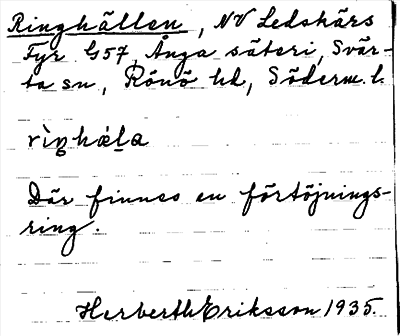 Ringhällen, NV Ledskärs
Fyr G57, Ånga säteri, Svär-
ta sn, Rönö hd, Söderm. l.
rìŋhäḷa
Där finnes en förtöjnings-
ring.
Herberth Eriksson 1935.